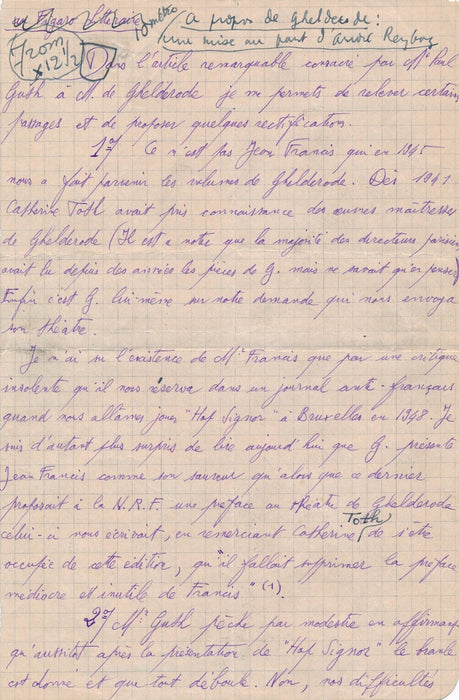 au Figaro littéraire
A propos de Ghelderode:
Une mise au point d'André Reybaz
Dans l'article remarquable consacré par Mr Paul
Guth à M. de Ghelderode je me permets de relever certains
passages et de proposer quelques rectification.
1°/ Ce n'est pas Jean Francis qui en 1945
nous a fait parvenir les volumes de Ghelderode. Dès 1941
Catherine Toth avait pris connaissance des œuvres maîtresses
de Ghelderode (Il est a noter que la majorité des directeurs parisiens
avait lu depuis des année les pièces de G. mais ne savait qu'en penser)
Enfin c'est G. lui-même sur notre demande qui nous envoya
son théâtre.
Je n'ai su l'existence de Mr Francis que par une critique
insolente qu'il nous réserva dans un journal anti-français
quand nous allâmes jouer "Hop Signor" à Bruxelles en 1948. Je
suis d'autant plus surpris de lire aujourd'hui que G. présente
Jean Francis comme son sauveur qu'alors que ce dernier
proposait à la N.R.F. une préface au théâtre de Ghelderode
celui-ci nous écrivait, en remerciant Catherine Toth de s'être
occupée de cette édition, qu'"il fallait supprimer la préface
médiocre et inutile de Francis" (1).
2°/ Mr Guth pêche par modestie en affirmant
qu'aussitôt après la présentation de "Hop Signor" le branle
est donné et que tout déboule. Non, nos difficultés